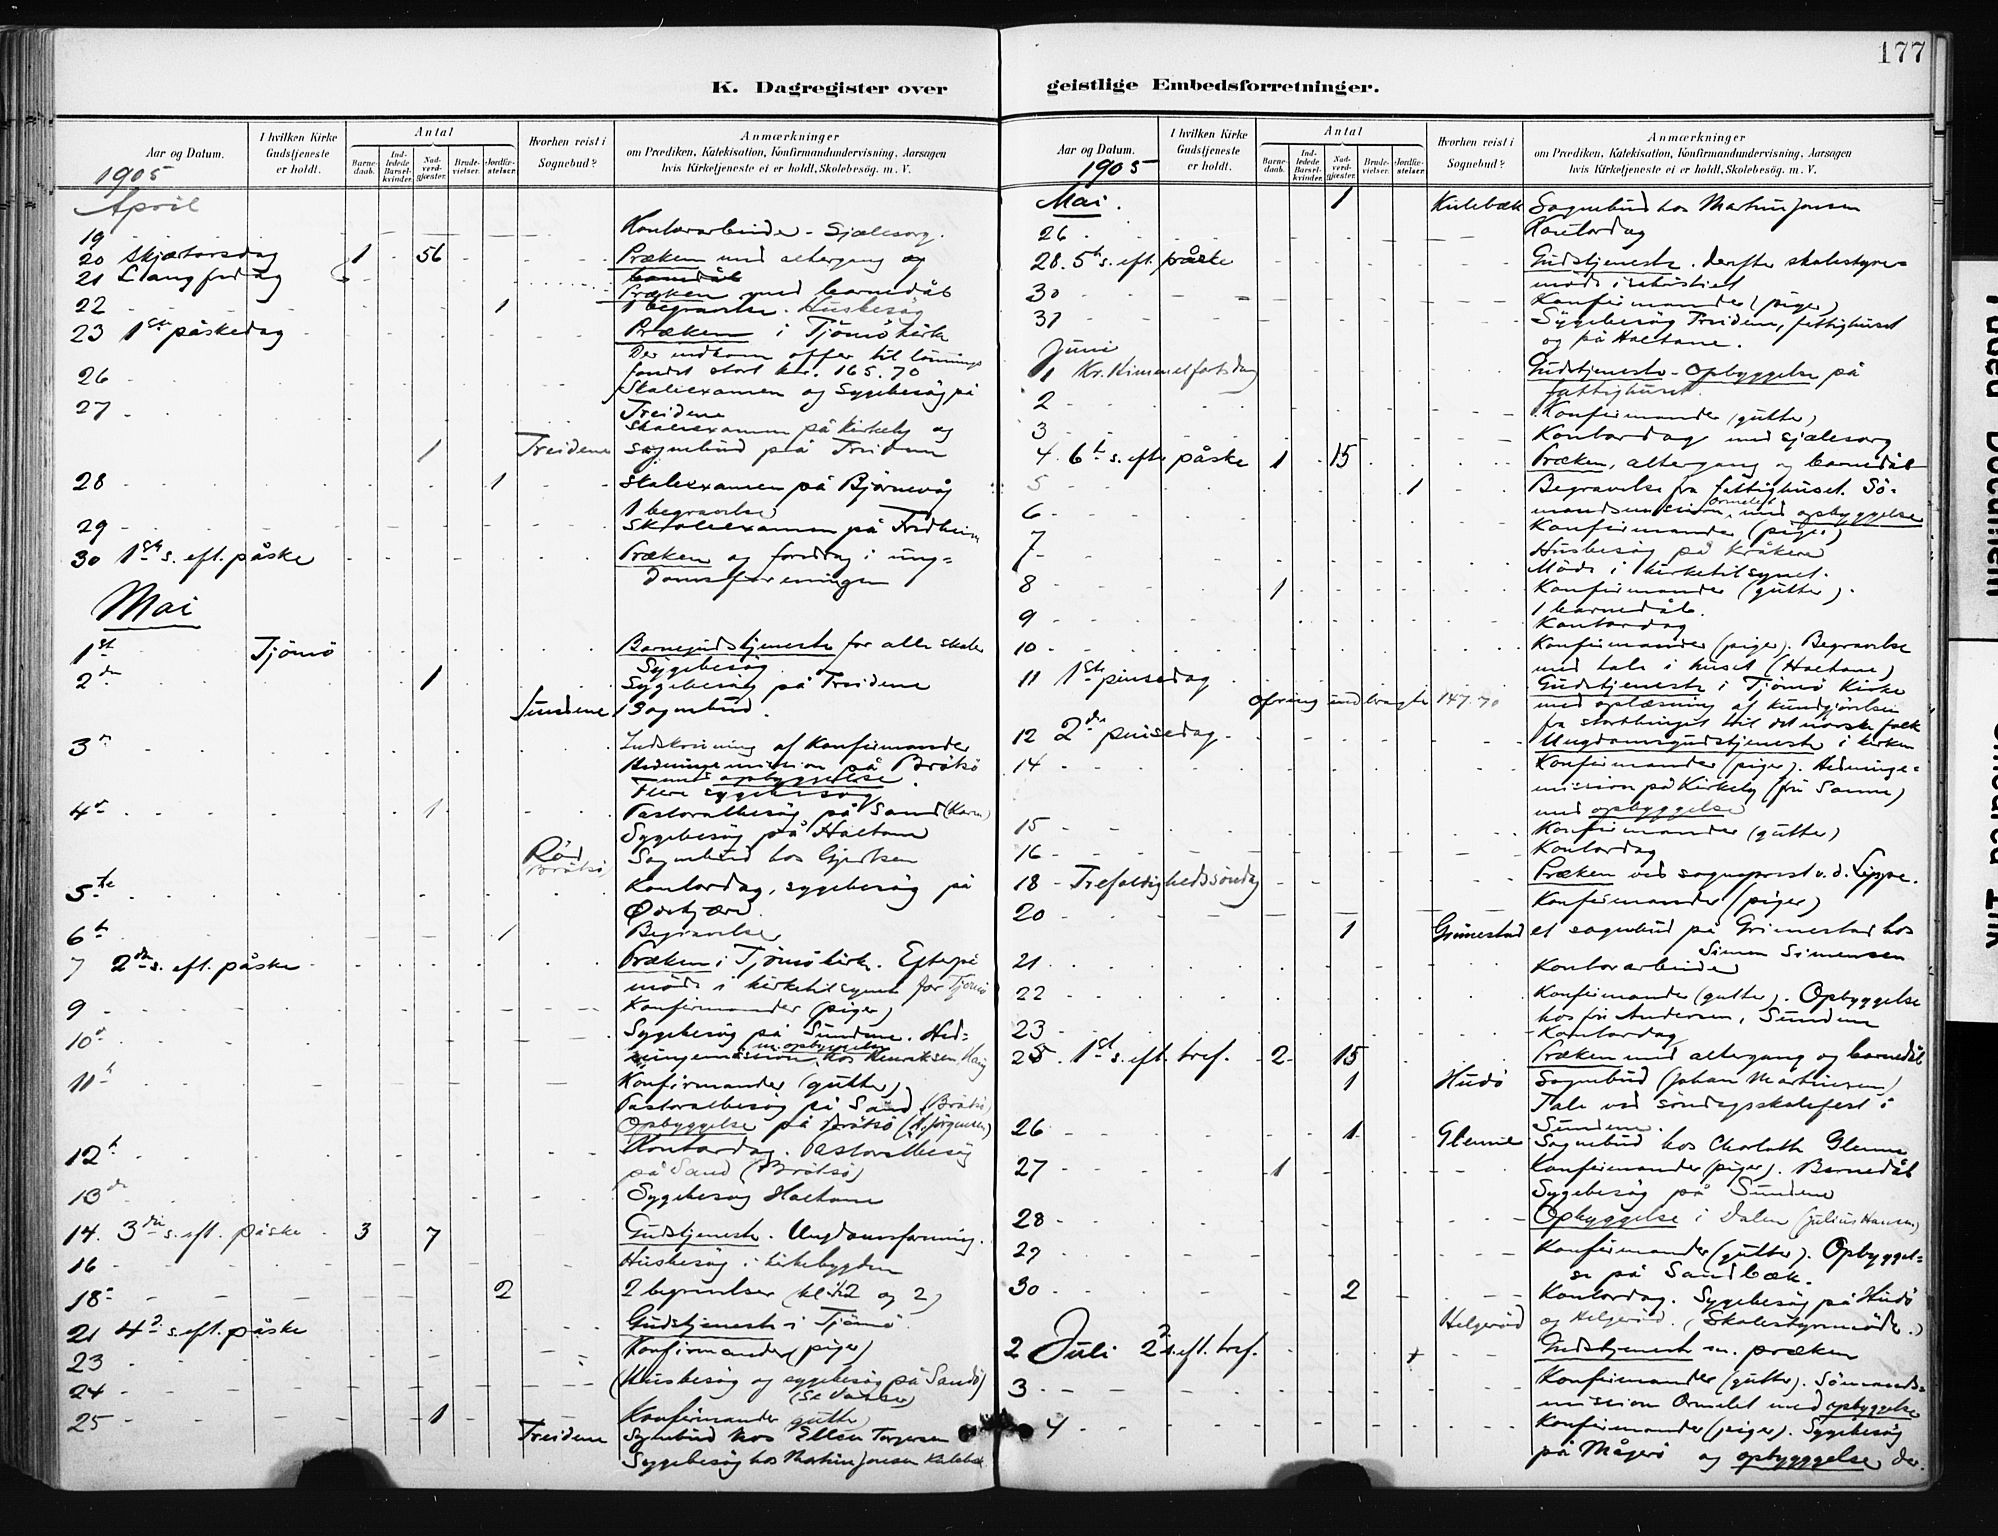 177
K. Dagregister over
geistlige Embedsforretninger.
Aar og Datum.
I hvilken Kirke Gudstjeneste er holdt.
Antal
Barne-daab.
Ind-ledede Barsel-kvinder.
Nad-verd-gjæster.
Brude-vielser.
Jordfæ-stelser.
Hvorhen reist i Sognebud?
Anmærkninger
om Prædiken, Katekisation, Konfirmandundervisning, Aarsagen
hvis Kirketjeneste ei er holdt, Skolebesøg. m. V.
1905
April
19 Kontorarbeide - Sjælesorg.
20 Skjærtorsdag 1 56 Præken med altergang og
barnedåb
21 Langfredag Præken med barnedåb
22 1 1 begravelse. Husbesøg
23 1ste påskedag Præken i Tjömö kirke
Der indkom offer til lönnings
fondet stort kr. 165.70
26 Skoleexamen og Sygebesög på
Treidene
27 Skoleexamen på Kirkeby og
1 Treidene sognebud på Treidene
28 1 Skoleexamen på Bjørnevåg
1 begravelse
29 Skoleexamen på Fredheim
30 1ste s. eft. påske Præken og foredrag i ung-
domsforeningen
Mai
1st Tjömö Barnegudstjeneste for alle skoler
Sygebesög
2den 1 Sygebesög på Treidene
Sundene 1 Sognebud.
3die Indskrivning af Konfirmander
Hedningemission på Bråtsö
med opbyggelse
Flere sygebesøg
4de 1 Pastoralbesög på Sand (Karen)
Sygebesög på Holtane
Röd Bråtsö Sognebud hos Gjertsen
5te Kontordag, sygebesøg på
6te 1 Begravelse
7 2den s. eft. påske Præken i Tjömö kirke. Efterpå
möde i kirketilsynet for Tjömö
9 Konfirmander (piger)
10de Sygebesøg på Sundene. Hed-
ningemission m. opbyggelse hos Henriksen, Haug
11te Konfirmander (gutter)
Pastoralbesög på Sand (Bråtsö)
Opbyggelse på Bråtsö (H. Jörgensen)
12te Kontordag. Pastoralbesög
på Sand (Bråtsö)
13de Sygebesøg Holtane
14. 3die s. eft. påske 3 7 Gudstjeneste. Ungdomsforening.
16 Husbesög i kirkebygden
18de 2 2 begravelser (kl. 12 og 2)
21 4de s. eft. påske Gudstjeneste i Tjömö
23 Konfirmander (piger)
24 (Husbesög og sygebesög på Sandö)
25 1 Konfirmander gutter
Treidene Sognebud hos Ellen Torgersen
Sygebesög hos Martin Jonsen Kulebæk
Aar og Datum.
I hvilken Kirke Gudstjeneste er holdt.
Antal
Barne-daab.
Ind-ledede Barsel-kvinder.
Nad-verd-gjæster.
Brude-vielser.
Jordfæ-stelser.
Hvorhen reist i Sognebud?
Anmærkninger
om Prædiken, Katekisation, Konfirmandundervisning, Aarsagen
hvis Kirketjeneste ei er holdt, Skolebesøg. m. V.
1905
Mai. 1 Kulebæk Sognebud hos Martin Jonsen
26 Kontordag
28. 5te s. eft. påske Gudstjeneste. Derefter skolestyre-
möde i
30 Konfirmander (piger)
31 Sygebesøg Treidene, fattighuset
og på Holtane.
Juni
1 Kr. Himmelfartsdag Gudstjeneste - Opbyggelse på
fattighuset.
2 Konfirmander (gutter)
3 Kontordag med sjælesorg
4. 6te s. efter påske 1 15 Præken, altergang og barnedåb
5 1 Begravelse fra fattighuset. Sö-
6 mandsmission, Ormelet med opbyggelse
Konfirmander (piger)
7 Husbesög på Kråkere
Möde i kirketilsynet.
8 1 Konfirmander (gutter).
1 barnedåb.
9 Kontordag
10 Konfirmander (piger). Begravelse
med tale i huset (Holtane)
11 1ste pinsedag Gudstjeneste i Tjömö Kirke
Ofring indbragte 147.70 med oplæsning af kundgjörelsen
fra stortinget til det norske folk
12 2den pinsedag. Ungdomsgudstjeneste i kirken
14 Konfirmander (piger). Hedninge-
mission på Kirkeby (fru Sanne)
med opbyggelse
15 Konfirmander (gutter)
16 Kontordag
18 Trefoldighedssöndag Præken ved sogneprest v. d. Lippe.
20 Konfirmander (piger)
1 Grimestad et sognebud på Grimestad hos
Simen Simensen
21 Kontorarbeide
22 Konfirmander (gutter). Opbyggelse
hos fru Andersen, Sundene
23 Kontordag
25 1st s. eft. tref. 2 15 Præken med altergang og barnedåb
1 Hudö Sognebud (Johan Martinsen)
Tale ved söndagsskolefest i
Sundene.
26 1 Glenne Sognebud hos Charlotte Glenne
27 1 Konfirmander (piger). Barnedåb
Sygebesög på Sundene
28 Opbyggelse i Dalen (Julius Hansen)
29 Konfirmander (gutter). Opbyggel-
se på Sandbæk.
30 2 Kontordag. Sygebesög på Hudö
Helgeröd og Helgeröd. (Skolestyremöde.)
2 Juli 2den s. eft. tref. Gudstjeneste m. præken
3 Konfirmander (gutter). Sömands-
mission Ormelet med opbyggelse
4 Konfirmander (piger). Sygebesög
på Mågerö og opbyggelse der.